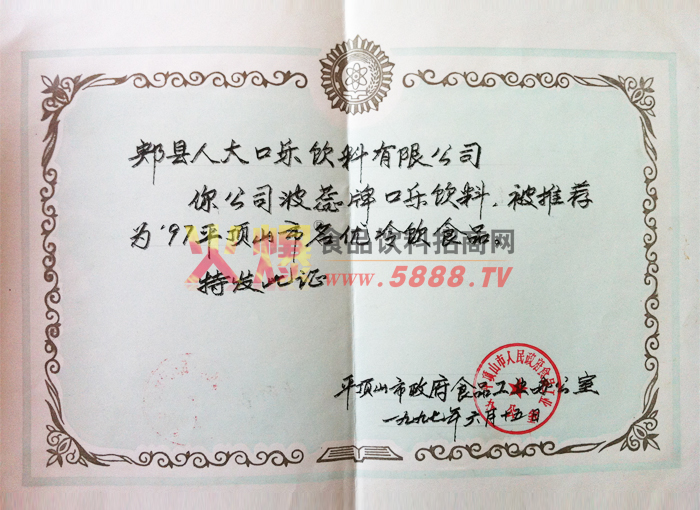 郏县人大口乐饮料有限公司
你公司波蕊牌口乐饮料,被推荐
为'97平顶山市名优冷饮食品。
火爆食品饮料招商网
www.5888.TV
特发此证
平顶山市政府食品工业办公室
一九九七年六月十五日
平顶山市人民政府食品工业办公室